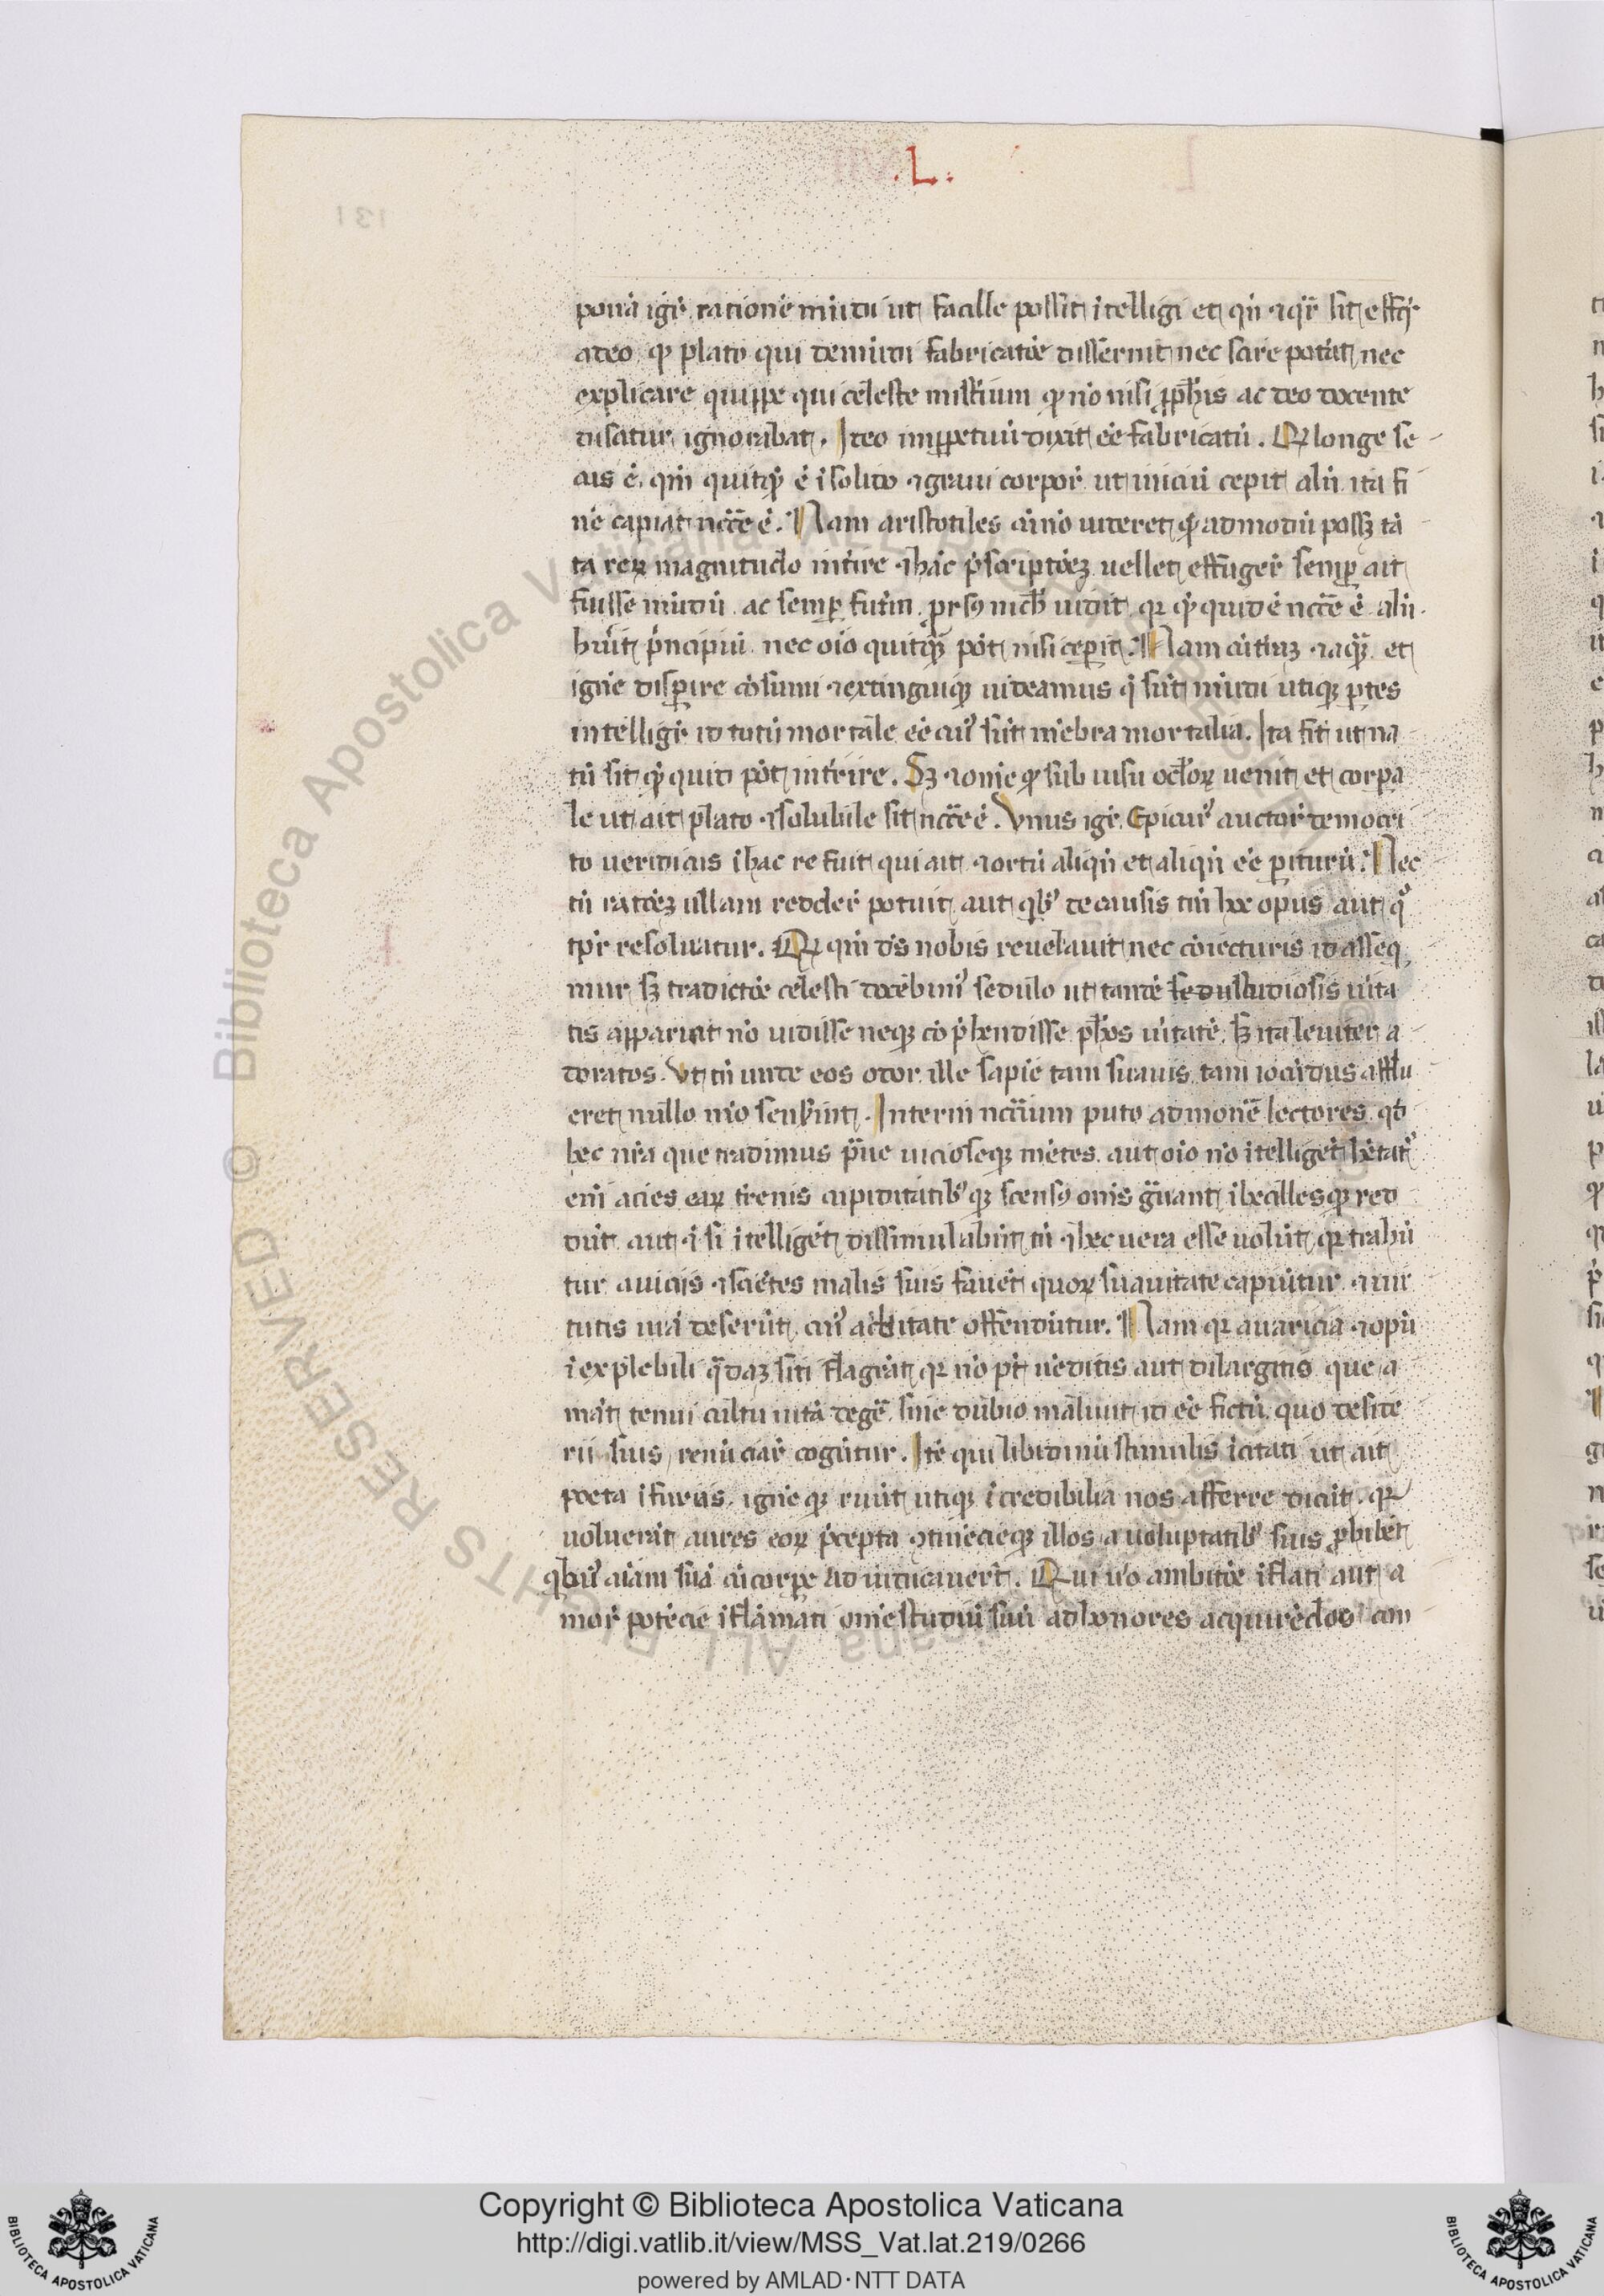 .L.
ponā igr̄ rationē mūdi ut facille possit ītelligi et qn̄ ⁊ qr̄ sit effꝯ
a deo qp̄ plato qui de mūdi fabricatōe disseruit nec scire potat nec
explicare quippe qui celeste misterium qp̄ nō nisi ꝓphis ac deo docente
disatur ignorabat. Ideo imperpetuū dixit eē fabricatū. Qp̄ longe se
cus ē. qm̄ quitqp̄ ē ī solido ⁊ graui corpore ut iniciū cepit alīn ita fi
nē capiat ncc̄e ē. Nam aristotiles cū nō uideret quēadmodū possꝫ tā
ta reꝝ magnitudo intire ⁊ hāc p̄scriptōeꝫ uellet effugere semꝑ ait
fuisse mūdū ac semꝑ futm̄. prsꝰ nichl uidit qꝛ qp̄ quid ē ncc̄e ē alīn
hūit principiū nec oīo quitqꝫ pōt nisi cepit. Nam cū tīraꝫ ⁊ aqꝫ et
ignē disꝑire cōsumi ⁊ extinguiqꝫ uideamus q̄ sūt mūdi utiqꝫ ꝑtes
intelligr̄ id totū mortale eē cuiꝰ sūt mēbra mortalia. Ita fit ut na
tū sit qp̄ quid pōt intīrire. Sꝫ ⁊ omē qp̄ sub uisu ocłoꝝ uenit et corpa
le ut ait plato ⁊ solubile sit ncc̄e ē. Vnus igr̄ Epicurꝰ auctore democri
to ueridicus ī hac re fuit qui ait ⁊ ortū aliqn̄ et aliqn̄ eē ꝑiturū. Nec
tn̄ ratōeꝫ ullam reddere potuit aut qbꝰ de causis tm̄ hoc opus aut qͦ
tpr̄e resoluatur. Qp̄ qm̄ ds̄ nobis reuelauit nec cōiecturis id asseq
mur sꝫ tradictōe celesti docebimꝰ sedulo ut tandē sedu studiosis uīta
tis appariat nō uidisse neqꝫ cōp̄hendisse phos uītatē. sꝫ ita leuiter a
doratos. Vt tn̄ unde eos odor ille sapīe tam suauis tam iocūdus afflu
eret nullo mō senserint. Interim nccīium puto admonē lectores qd
hec nr̄a que tradimus p̄ue uicioseqꝫ mētes aut oīo nō ītelligēt hetatꝰ
eni acies eaꝝ terrenis cupiditatibꝰ qꝫ sensꝰ omīs grauant ībecillesqꝫ red
dūt. aut ⁊ si ītelligēt dissimulabūt tn̄ ⁊ hec uera esse nolūt qꝛ trahū
tur a uiciis ⁊ sciētes malis suis fauēt quoꝝ suauitate capiūtur ⁊ uir
tutis uiā deserūt. cuiꝰ acerbitate offendūtur. Nam qꝛ auaricia ⁊ opū
īexplebili qdaꝫ siti flagrāt qꝛ nō pt̄ uēditis aut dilargitis que a
māt tenui cultu uitā degē sine dubio malunt id eē fictū. quo deside
rii suis renūciare cogūtur. Itē qui libidinū stimulis īcitati ut ait
poeta ī furias ignēqꝫ ruūt utiqꝫ īcredibilia nos afferre dicūt. qꝛ
uoluerāt aures eoꝝ p̄cepta ꝯtinēcieqꝫ illos a uoluptatibꝰ suis ꝓhibēt
qbꝰ aīam suā cū corpe ad iudicauert. Qui uō ambitōe īflati aut a
more potēcie īflāmati omē studiū suū ad honores acquirēdos con
131
© Biblioteca Apostolica Vaticana ALL RIGHTS RESERVED
Copyright © Biblioteca Apostolica Vaticana
http://digi.vatlib.it/view/MSS_Vat.lat.219/0266
powered by AMLAD·NTT DATA
BIBLIOTECA APOSTOLICA VATICANA
BIBLIOTECA APOSTOLICA VATICANA